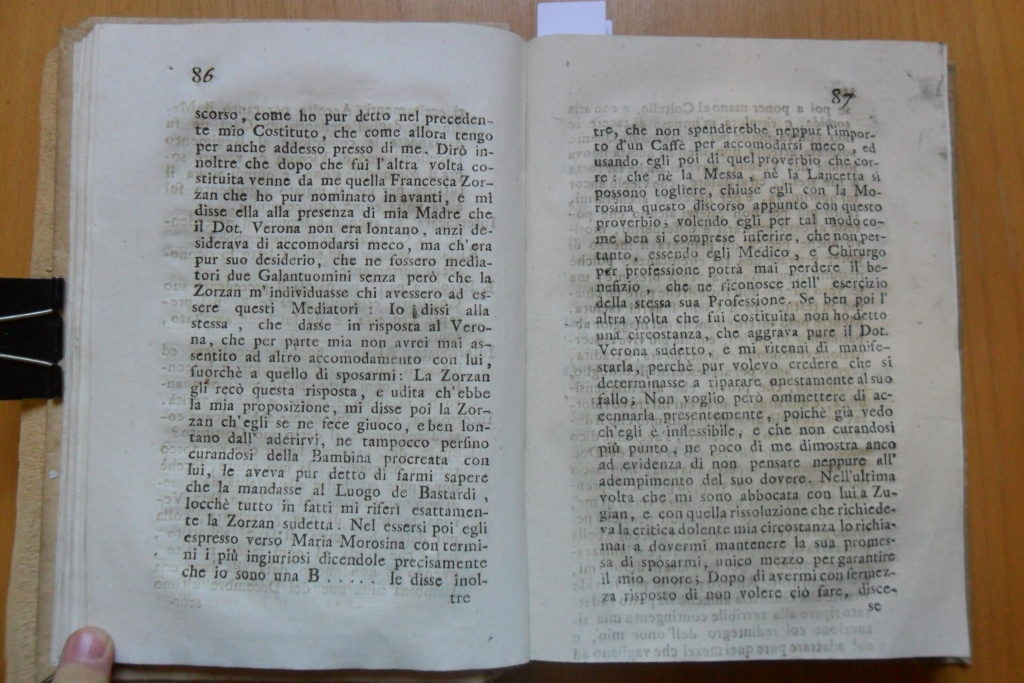 86
scorso, come ho pur detto nel preceden-
te mio Costituto, che come allora tengo
per anche addesso presso di me. Dirò in-
noltre che dopo che fui l'altra volta co-
stituita venne da me quella Francesca Zor-
zan che ho pur nominato in avanti, e mi
disse ella alla presenza di mia Madre che
il Dot. Verona non era lontano, anzi de-
siderava di accomodarsi meco, ma ch'era
pur suo desiderio, che ne fossero media-
tori due Galantuomini senza però che la
Zorzan m'individuasse chi avessero ad es-
sere questi Mediatori: Io dissi alla
stessa, che dasse in risposta al Vero-
na, che per parte mia non avrei mai as-
sentito ad altro accomodamento con lui,
fuorchè a quello di sposarmi: La Zorzan
gli recò questa risposta, e udita ch'ebbe
la mia proposizione, mi disse poi la Zor-
zan ch'egli se ne fece giuoco, e ben lon-
tano dall' aderirvi, ne tampocco perfino
curandosi della Bambina procreata con
lui, le aveva pur detto di farmi sapere
che la mandasse al Luogo de Bastardi,
locchè tutto in fatti mi riferì esattamen-
te la Zorzan sudetta. Nel essersi poi egli
espresso verso Maria Morosina con termi-
ni i più ingiuriosi dicendole precisamente
che io sono una B..... le disse inol-
tre
87
tre, che non spenderebbe neppur l'impor-
to d'un Caffe per accomodarsi meco, ed
usando egli poi di quel proverbio che cor-
re: che nè la Messa, nè la Lancetta si
possono togliere, chiuse egli con la Mo-
rosina questo discorso appunto con questo
proverbio; volendo egli per tal modo co-
me ben si comprese inferire, che non per-
tanto, essendo egli Medico, e Chirurgo
per professione potrà mai perdere il be-
nefizio, che ne riconosce nell' esercizio
della stessa sua Professione. Se ben poi l'
altra volta che fui costituita non ho detto
una circostanza, che aggrava pure il Dot.
Verona sudetto, e mi ritenni di manife-
starla, perchè pur volevo credere che si
determinasse a riparare onestamente al suo
fallo; Non voglio però ommettere di ac-
cennarla presentemente, poichè già vedo
ch'egli è inflessibile, e che non curandosi
più punto, ne poco di me dimostra anco
ad evidenza di non pensare neppure all'
adempimento del suo dovere. Nell'ultima
volta che mi sono abboccata con lui a Zu-
gian, e con quella rissoluzione che richiede-
va la critica dolente mia circostanza lo richia-
mai a dovermi mantenere la sua promes-
sa di sposarmi, unico mezzo per garantire
il mio onore; Dopo di avermi con fermez-
za risposto di non volere ciò fare, disce-
se